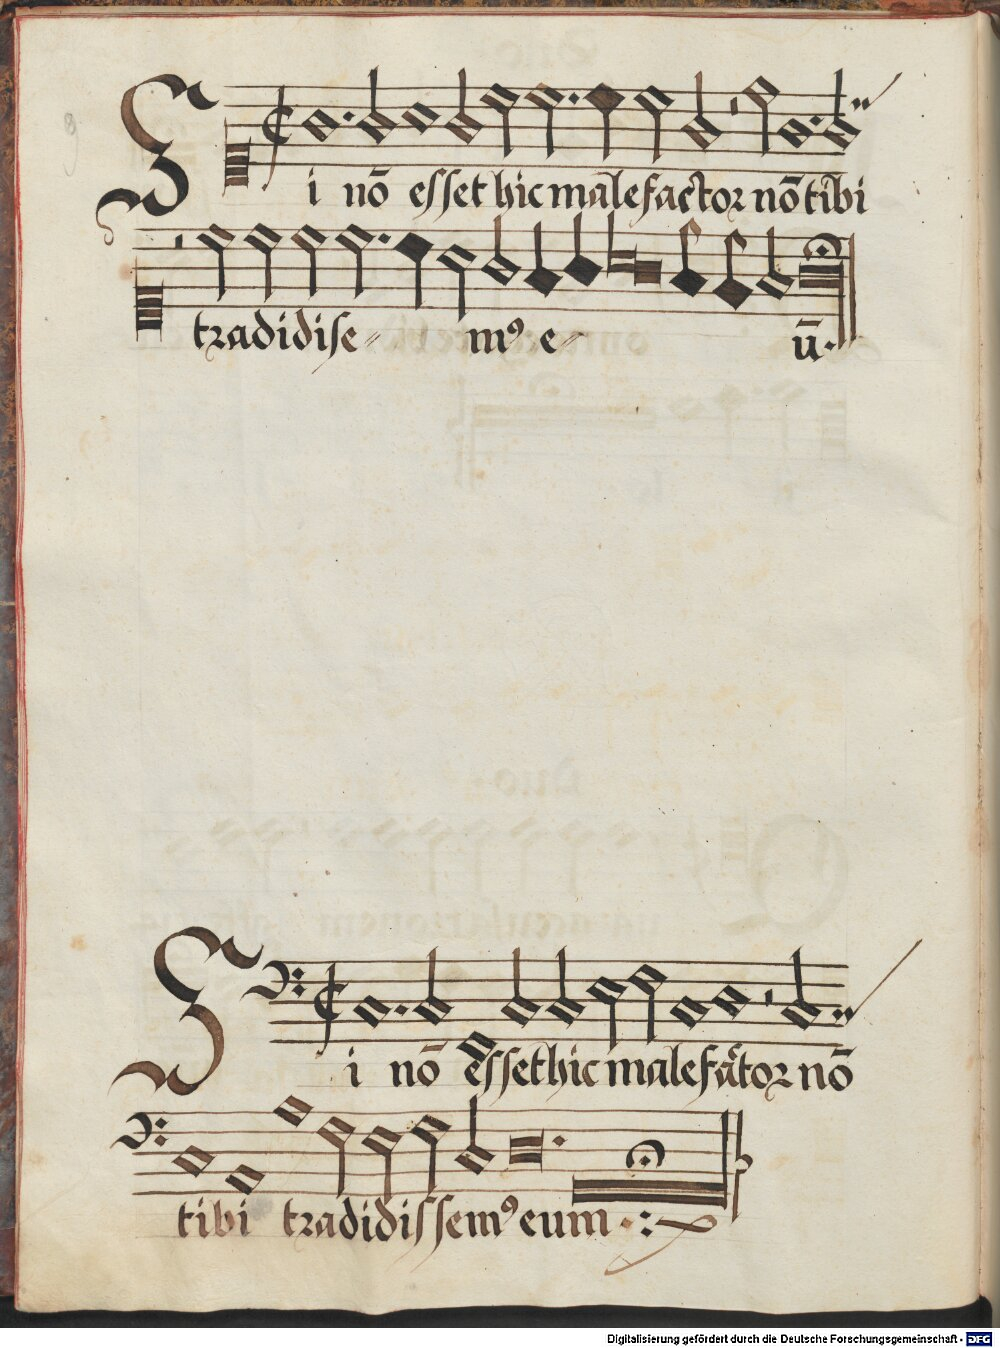 Si nō esset hic malefactor nō tibi
tradidise m⁹ e ū.
Si nō esset hic malefactor nō
tibi tradidissem⁹ eum
Digitalisierung gefördert durch die Deutsche Forschungsgemeinschaft - DFG